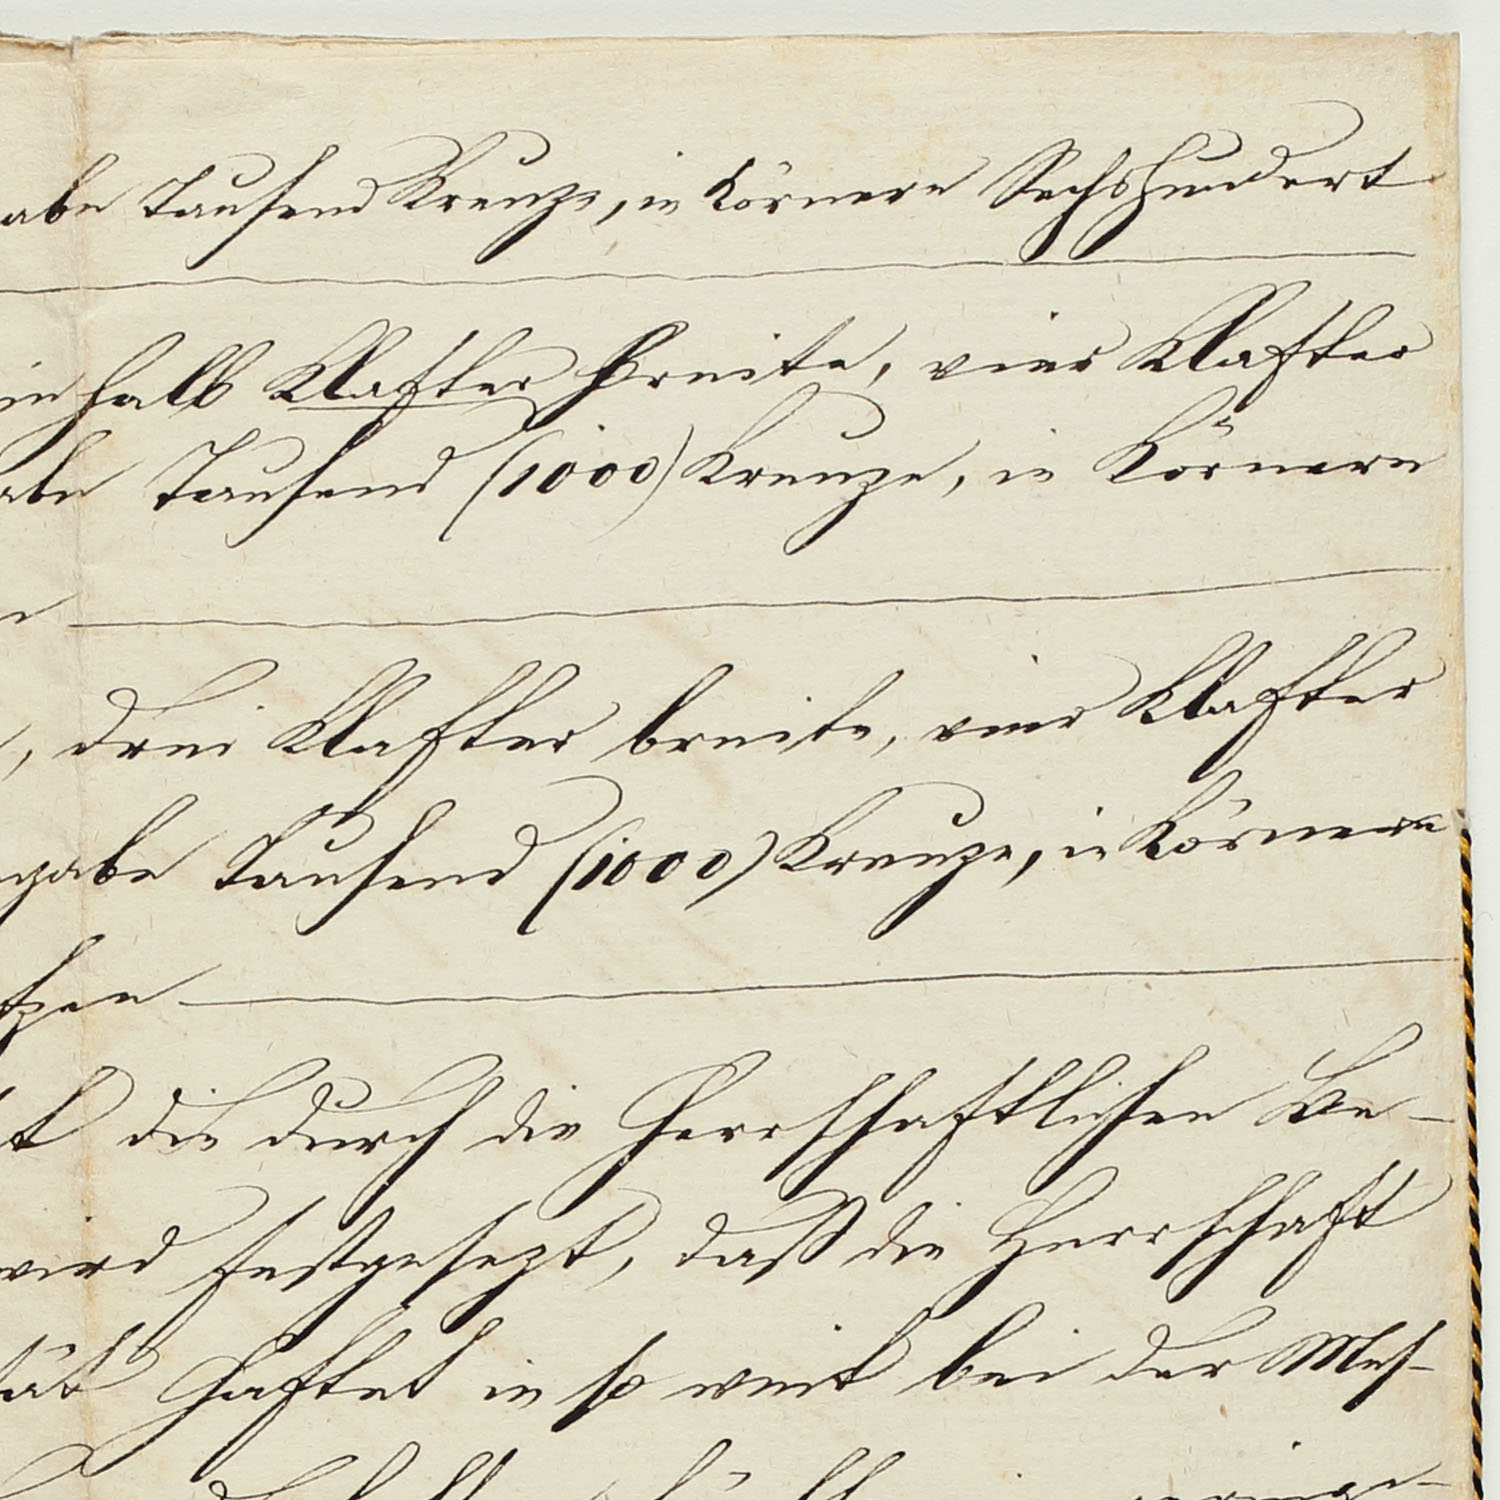 abe Tausend Kreuze, in Körnern Sechshundert
inhalb Klafter Breite, vier Klafter
abe Tausend (1000) Kreuze, in Körnern
, drei Klafter breite, vier Klafter
gabe Tausend (1000) Kreuze, in Körnern
tzen
t die durch die Herrschaftlichen Be-
wird festgesezt, daß die Herrschaft
tät haftet in so weit bei der Mes-